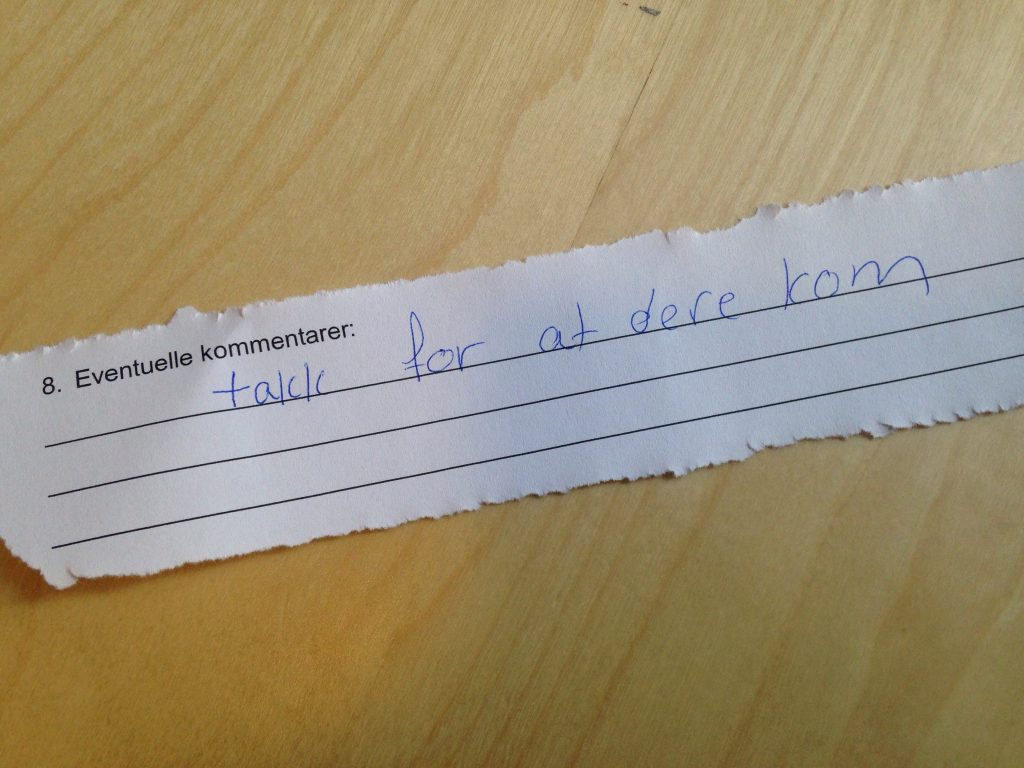 8. Eventuelle kommentarer:
takk for at dere kom